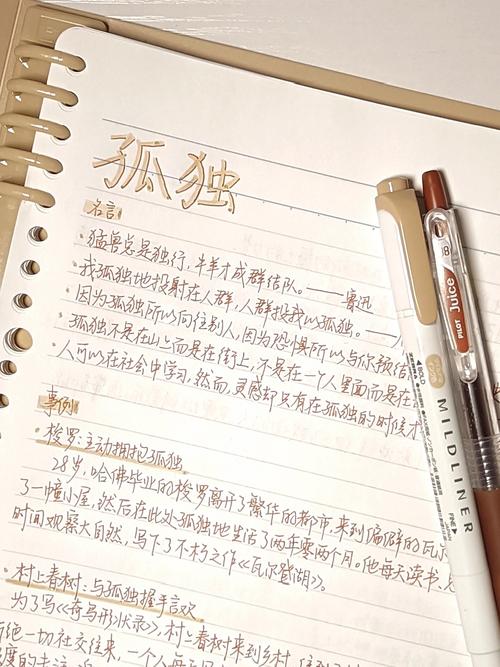 孤独
名言
·猛兽总是独行,牛羊才成群结队。——鲁迅
·我孤独地投射在人群,人群投我以孤独。——
·因为孤独所以向往别人,因为恐惧所以与你
孤独不是在山上而是在街上,不是在一个人里面而是在
·人可以在社会中学习,然而,灵感却只有在孤独的时候才
事例
·梭罗:主动拥抱孤独
28岁,哈佛毕业的梭罗离开了繁华的都市,来到偏僻的瓦尔
了一幢小屋,然后在此处孤独地生活了两年零两个月。他每天读书、
时间观察大自然,写下了不朽之作《瓦尔登湖》。
·村上春树:与孤独握手言欢
为了写《奇鸟形状录》,村上春树来到乡村,住到
绝一切社交往来,一个人每天
度的专注
PILOT Juice
08
MILDLINER